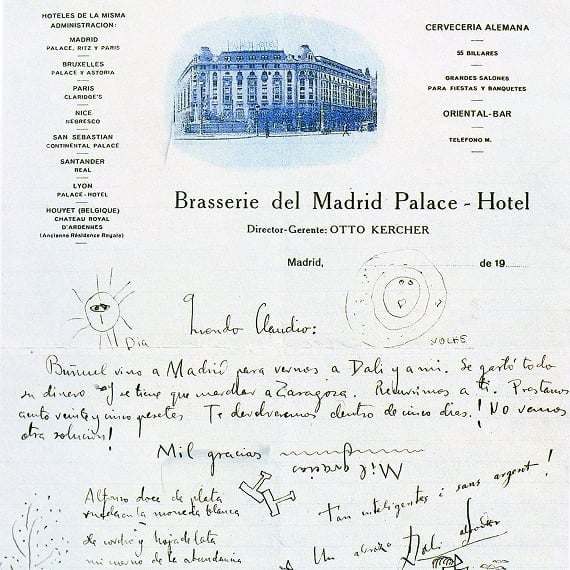 HOTELES DE LA MISMA
ADMINISTRACION:
MADRID
PALACE, RITZ Y PARIS
BRUXELLES
PALACE Y ASTORIA
PARIS
CLARIDGE'S
NICE
NEGRESCO
SAN SEBASTIAN
CONTINENTAL PALACE
SANTANDER
REAL
LYON
PALACE-HOTEL
HOUYET (BELGIQUE)
CHATEAU ROYAL
D'ARDENNES
(Ancienne Résidence Royale)
CERVECERIA ALEMANA
55 BILLARES
GRANDES SALONES
PARA FIESTAS Y BANQUETES
ORIENTAL-BAR
TELÉFONO M.
Brasserie del Madrid Palace - Hotel
Director-Gerente: OTTO KERCHER
Madrid, de 19
Dia
Claudio:
Buñuel vino a Madrid para vernos a Dali y a mi. Se gastó todo
su dinero y se tiene que marchar a Zaragoza. Recurrimos a ti. Prestanos
ciento veinte y cinco pesetas Te devolveremos dentro de cinco dias. ! No vemos
otra solución!
Mil gracias
Mil gracias
Tan inteligentes i sans argent!
Alfonso doce de plata
rueda en la moneda blanca
de corcho y hoja de lata
mi de la abundancia
Un abrazo Dali